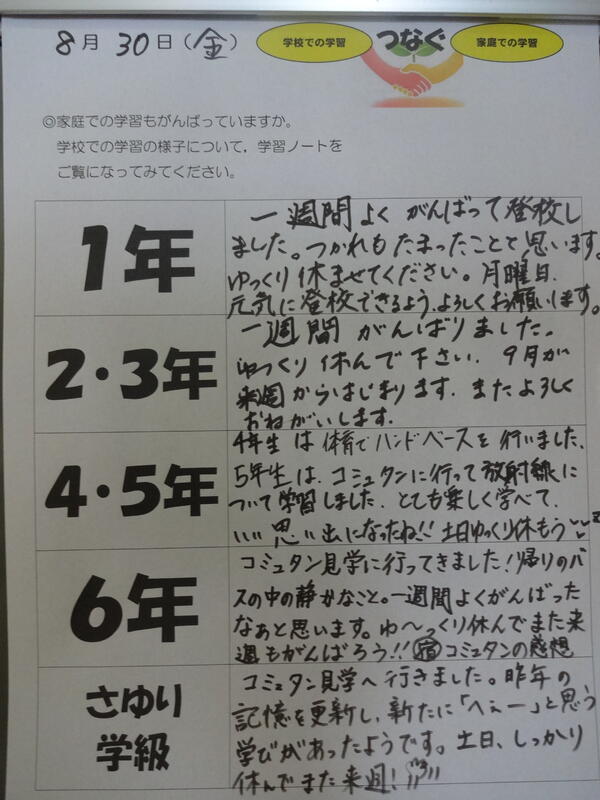 8月30日(金)
学校での学習 つなぐ 家庭での学習
◎家庭での学習もがんばっていますか。
学校での学習の様子について，学習ノートを
ご覧になってみてください。
1年
一週間よくがんばって登校し
ました。つかれもたまったことと思います。
ゆっくり休ませてください。月曜日、
元気に登校できるよう、よろしくお願いします。
2・3年
一週間がんばりました。
ゆっくり休んで下さい。9月が
来週からはじまります。またよろしく
おねがいします。
4・5年
4年生は体育でハンドベースを行いました。
5年生は、コミュタンに行って放射線に
ついて学習しました。とても楽しく学べて、
いい思い出になったね!!土日ゆっくり休もう
6年
コミュタン見学に行ってきました!帰りのバ
スの中の静かなこと。一週間よくがんばった
なぁと思います。ゆ〜っくり休んでまた来
週もがんばろう!!宿コミュタンの感想
さゆり
学級
コミュタン見学へ行きました。昨年の
記憶を更新し、新たに「へぇー」と思う
学びがあったようです。土日、しっかり
休んでまた来週!